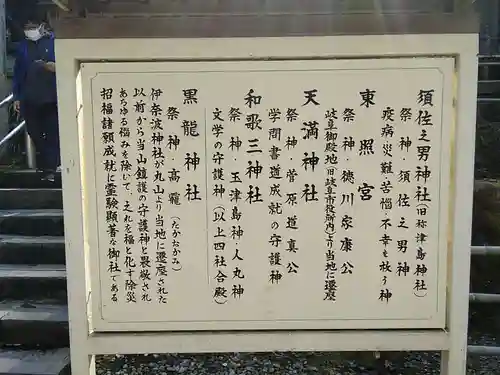 須佐之男神社（旧称津島神社）
祭神・須佐之男神
疫病災難・苦悩・不幸を救う神
東照宮
祭神・徳川家康公
岐阜御殿地旧岐阜市役所内より当地に遷座
天満神社
祭神・菅原道真公
学問書道成就の守護神
和歌三神社
祭神・玉津島神・人丸神
文学の守護神（以上四社合殿）
黒龍神社
祭神・高龗（たかおかみ）
伊奈波神社が丸山より当地に遷座された
以前から当山鎮護の守護神と畏敬され
あらゆる悩みを除いて、これを福と化す除災
招福諸願成就に霊験顕著な御社である